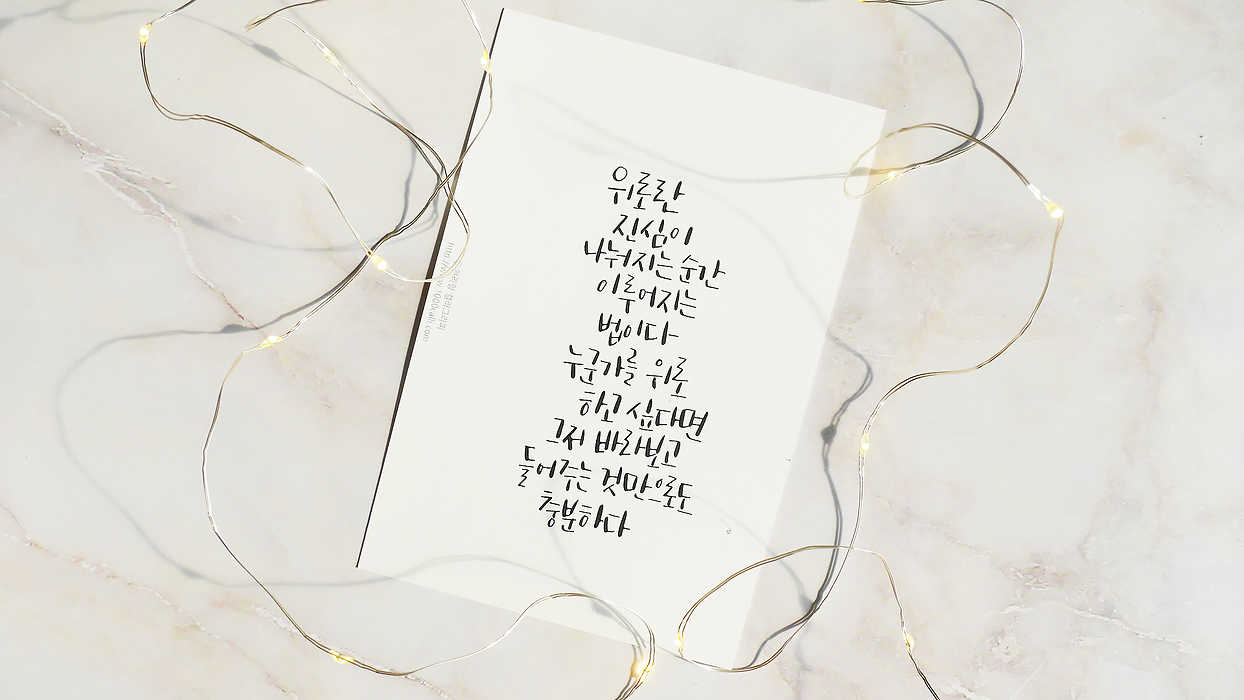 위로란
진심이
나눠지는 순간
이루어지는
법이다
누군가를 위로
하고 싶다면
그저 바라보고
들어주는 것만으로도
충분하다
캘리그라피